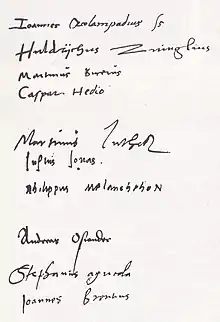 Ioannes Oecolampadius ss
Huldrychus Zuinglius
Martinus Bucerus
Caspar Hedio
Martinus Luther
Iustus Jonas.
Philippus Melanchthon
Andreas Osiander
Stephanus agricola
Ioannes Brentius